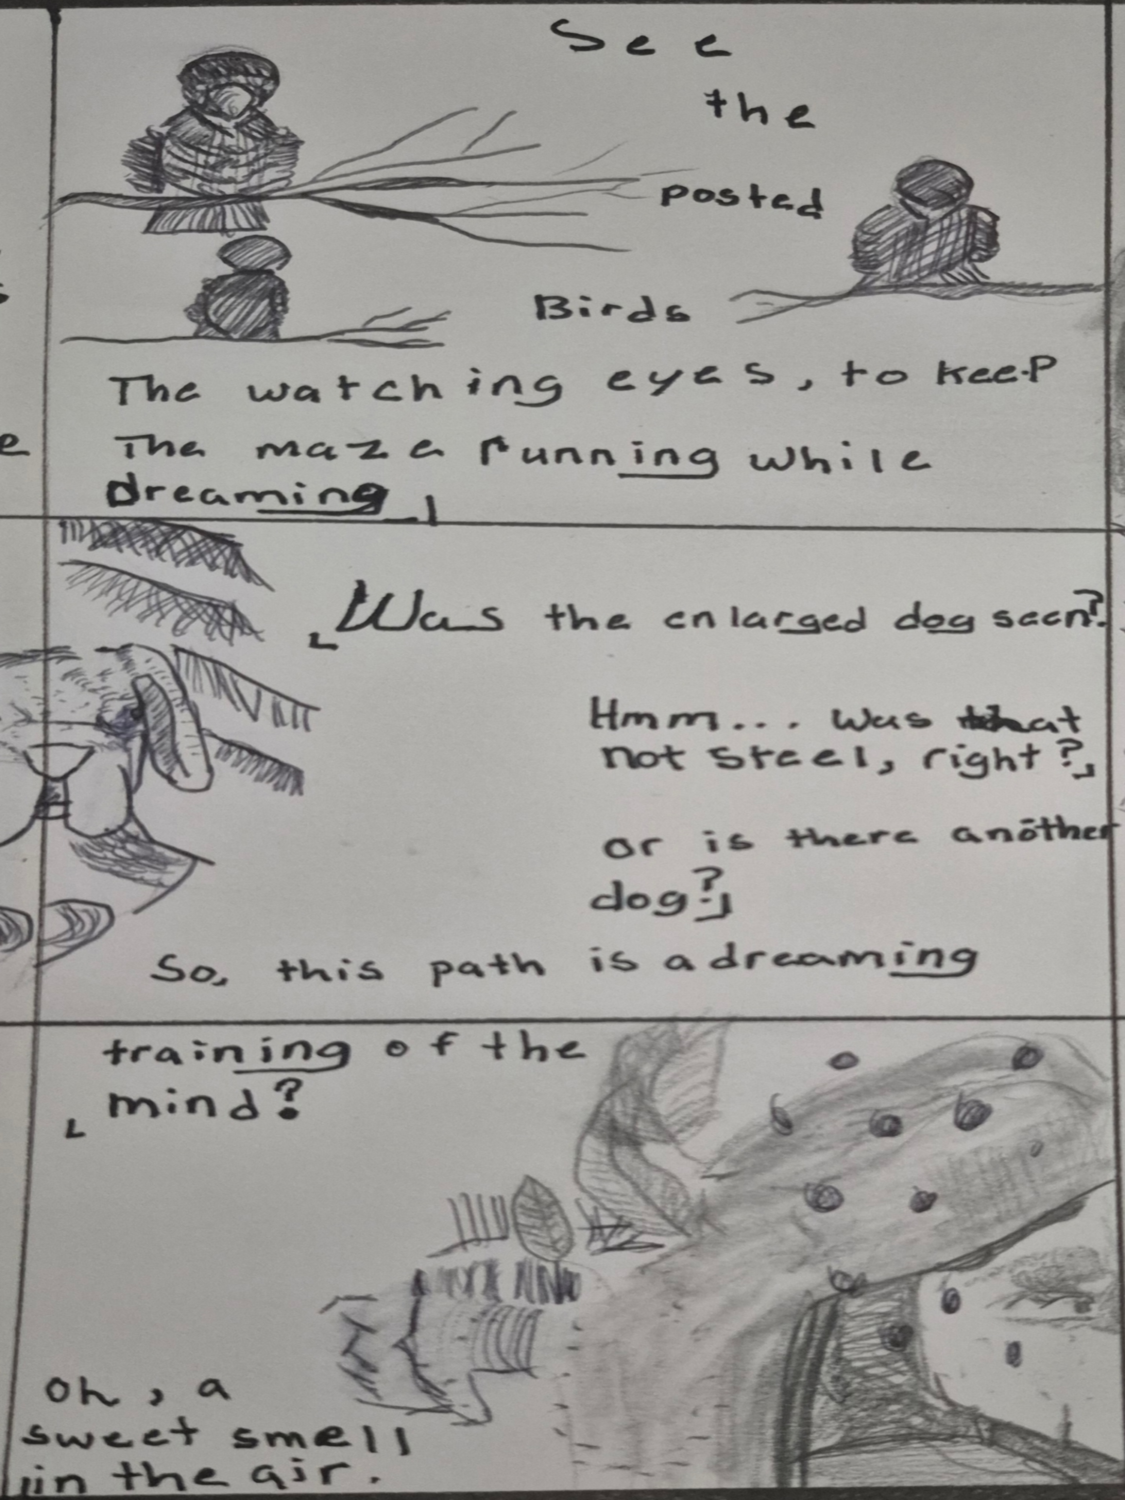 See
the
posted
Birds
The watching eyes, to keep
The maze running while
dreaming
Was the enlarged dog seen?
Hmm... was that
not steel, right?
or is there another
dog?
So, this path is a dreaming
training of the
mind?
oh, a
sweet smell
in the air.